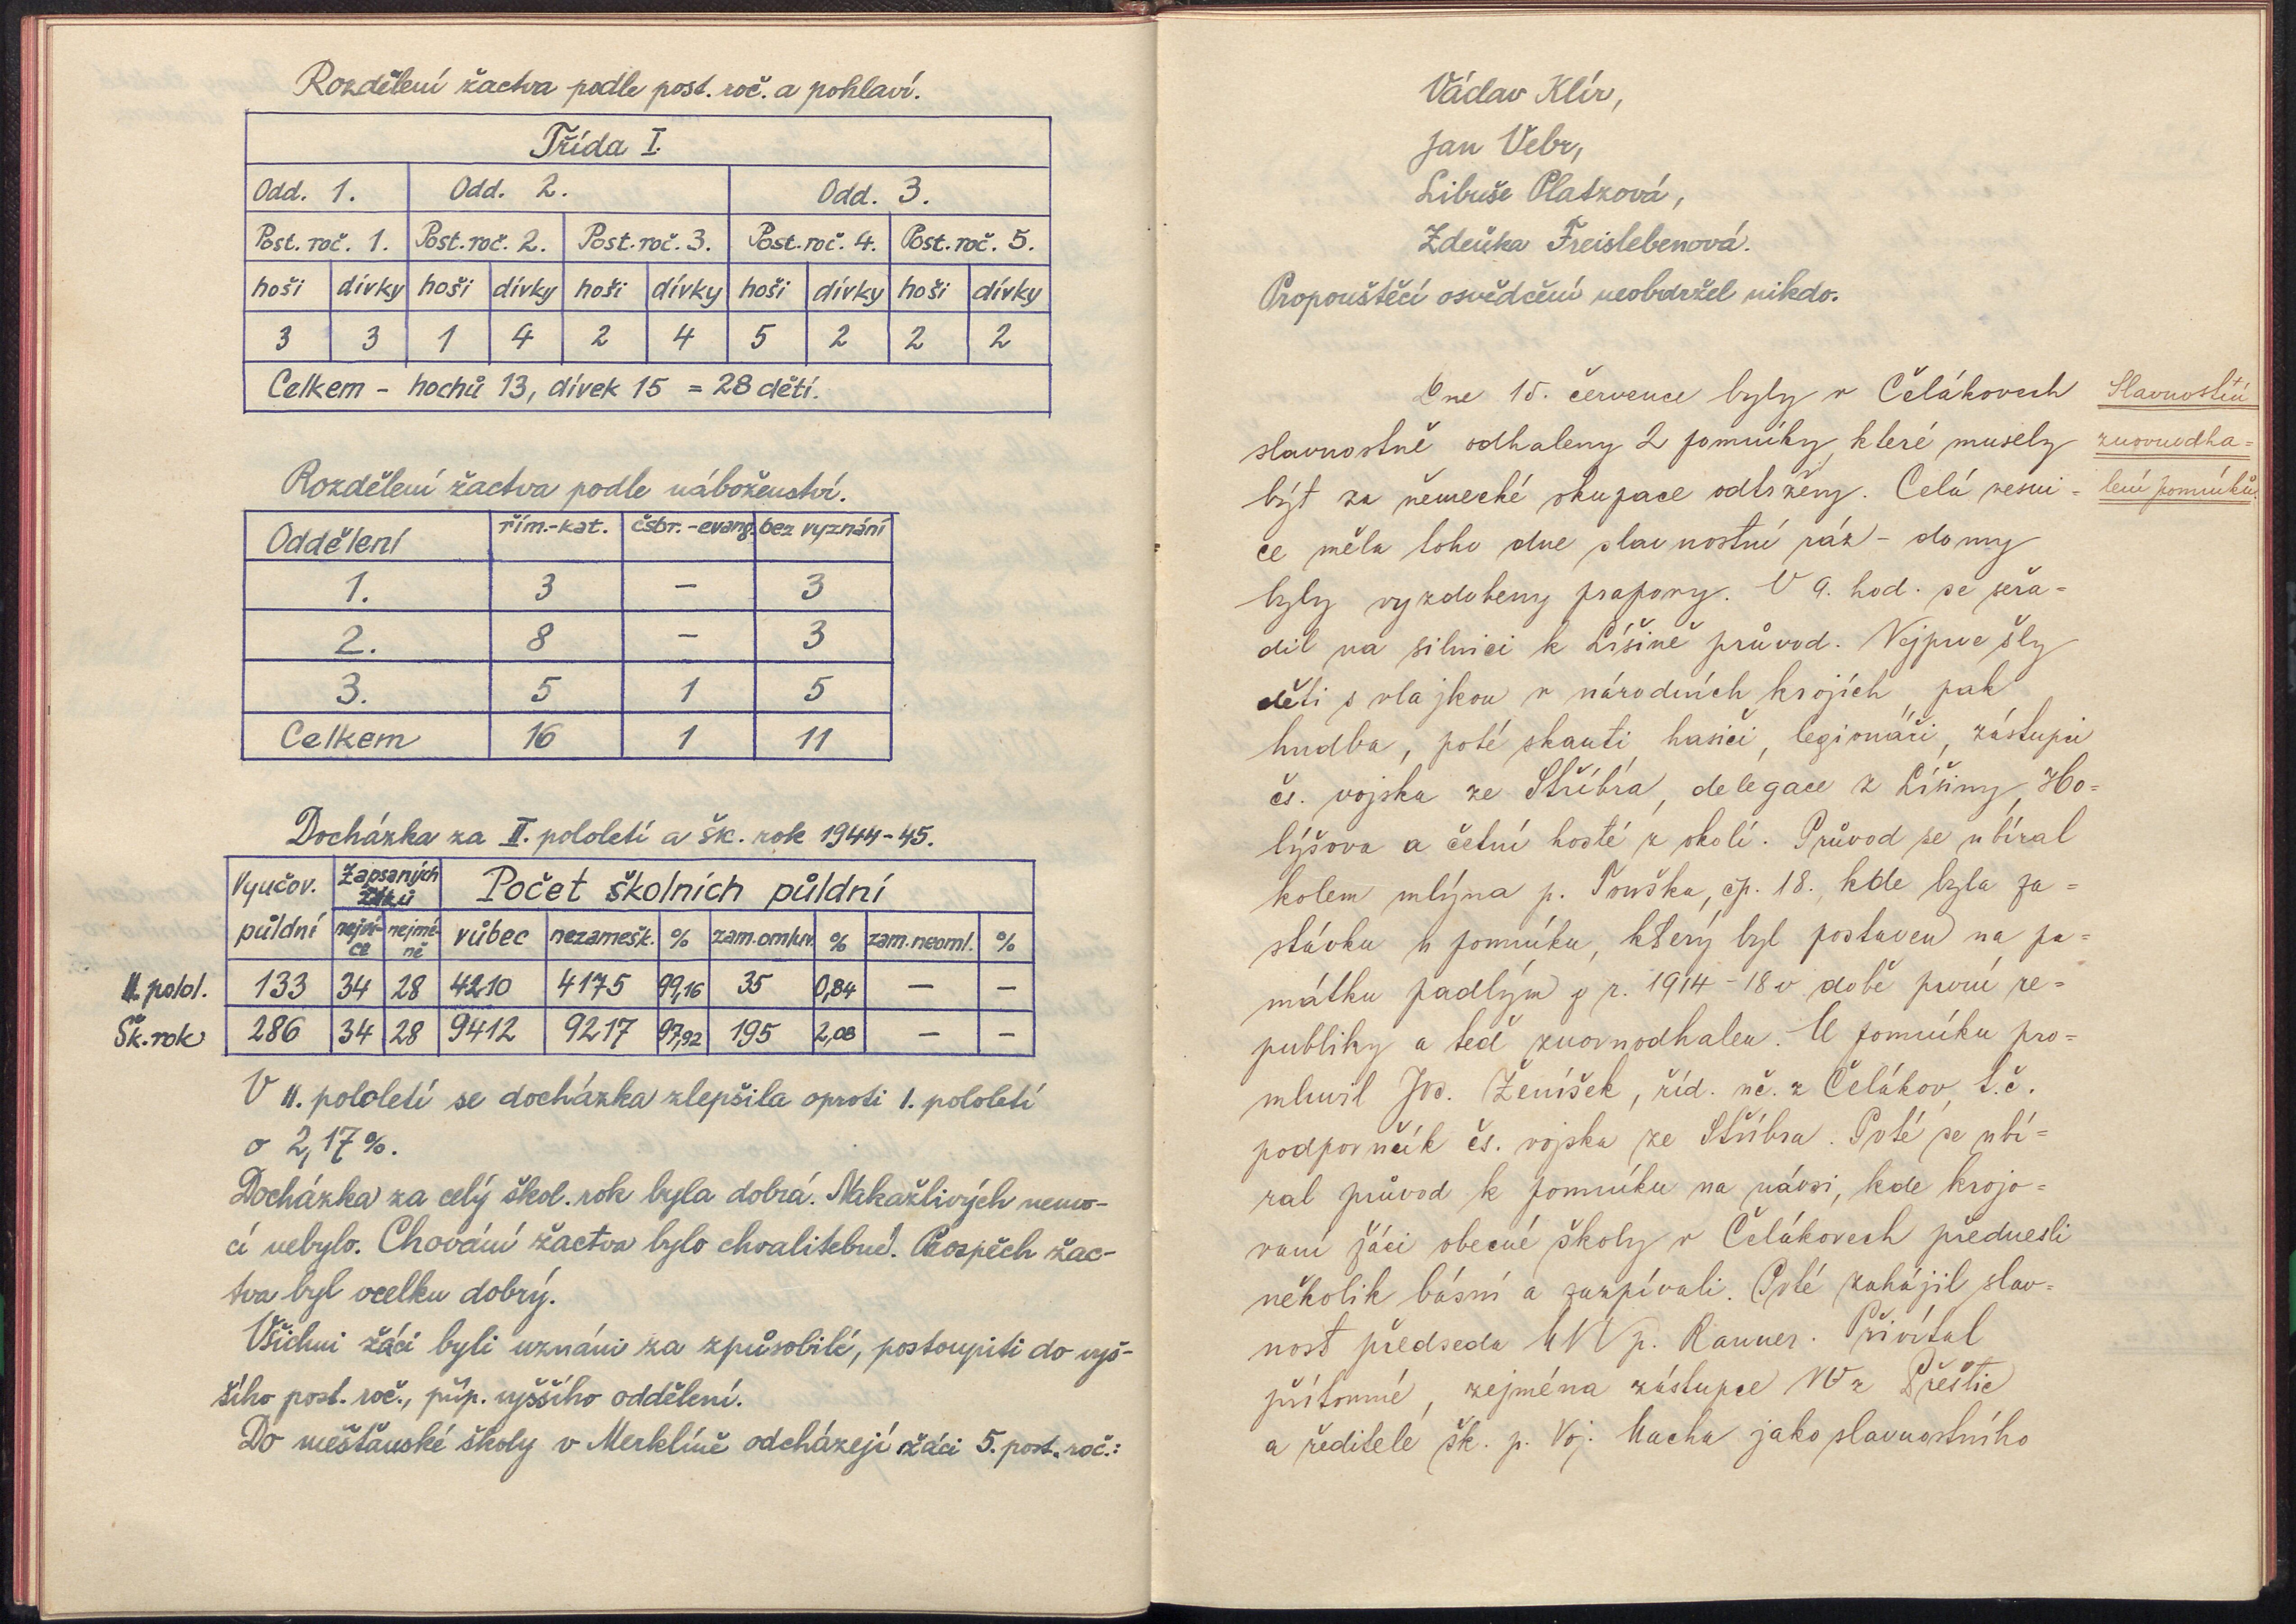 Rozdělení žactva podle post. roč. a pohlaví.
Třída I.
Odd. 1. Odd. 2. Odd. 3.
Post. roč. 1. Post. roč. 2. Post. roč. 3. Post. roč. 4. Post. roč. 5.
hoši dívky hoši dívky hoši dívky hoši dívky hoši dívky
3 3 1 4 2 4 5 2 2 2
Celkem - hochů 13, dívek 15 = 28 dětí.
Rozdělení žactva podle náboženství.
Oddělení řím.-kat. čsbr.-evang. bez vyznání
1. 3 – 3
2. 8 – 3
3. 5 1 5
Celkem 16 1 11
Docházka za II. pololetí a šk. rok 1944-45.
Vyučov. půldní Zapsaných žáků Počet školních půldní
nejví-ce nejmé-ně vůbec nezamešk. % zam. omluv. % zam. neoml. %
II. polol. 133 34 28 4210 4175 99,16 35 0,84 – –
Šk. rok 286 34 28 9412 9217 97,92 195 2,08 – –
V II. pololetí se docházka zlepšila oproti I. pololetí
o 2,17%.
Docházka za celý škol. rok byla dobrá. Nakažlivých nemo-
cí nebylo. Chování žactva bylo chvalitebné. Prospěch žac-
tva byl vcelku dobrý.
Všichni žáci byli uznáni za způsobilé, postoupiti do vyš-
šího post. roč., příp. vyššího oddělení.
Do měšťanské školy v Merklíně odcházejí žáci 5. post. roč.:
Václav Klír,
Jan Vebr,
Libuše Platzová,
Zdeňka Freislebenová.
Propouštěcí osvědčení neobdržel nikdo.
Dne 15. července byly v Čelákovech
slavnostně odhaleny 2 pomníky, které musely
být za německé okupace odtrženy. Celá vesni=
ce měla toho dne slavnostní ráz - domy
byly vyzdobeny prapory. V 9. hod. se seřa=
dil na silnici k Líšině průvod. Nejprve šly
děti s vlajkou v národních krojích, pak
hudba, poté skauti, hasiči, legionáři, zástupci
čs. vojska ze Stříbra, delegace z Líšiny, Ho=
lýšova a četní hosté z okolí. Průvod se ubíral
kolem mlýna p. Touška, čp. 18., kde byla za=
stávka u pomníku, který byl postaven na pa=
mátku padlým z r. 1914-18 v době první re=
publiky a teď znovuodhalen. U pomníku pro=
mluvil Jos. Ženíšek, říd. uč. z Čelákov, t.č.
podporučík čs. vojska ze Stříbra. Poté se ubí=
ral průvod k pomníku na návsi, kde krojo=
vaní žáci obecné školy v Čelákovech přednesli
několik básní a zazpívali. Poté zahájil slav=
nost předseda MNV p. Ranner. Přivítal
přítomné, zejména zástupce NV z Přeštic
a ředitele šk. p. Voj. Macha jako slavnostního
Slavnostní
znovuodha=
lení pomníků.